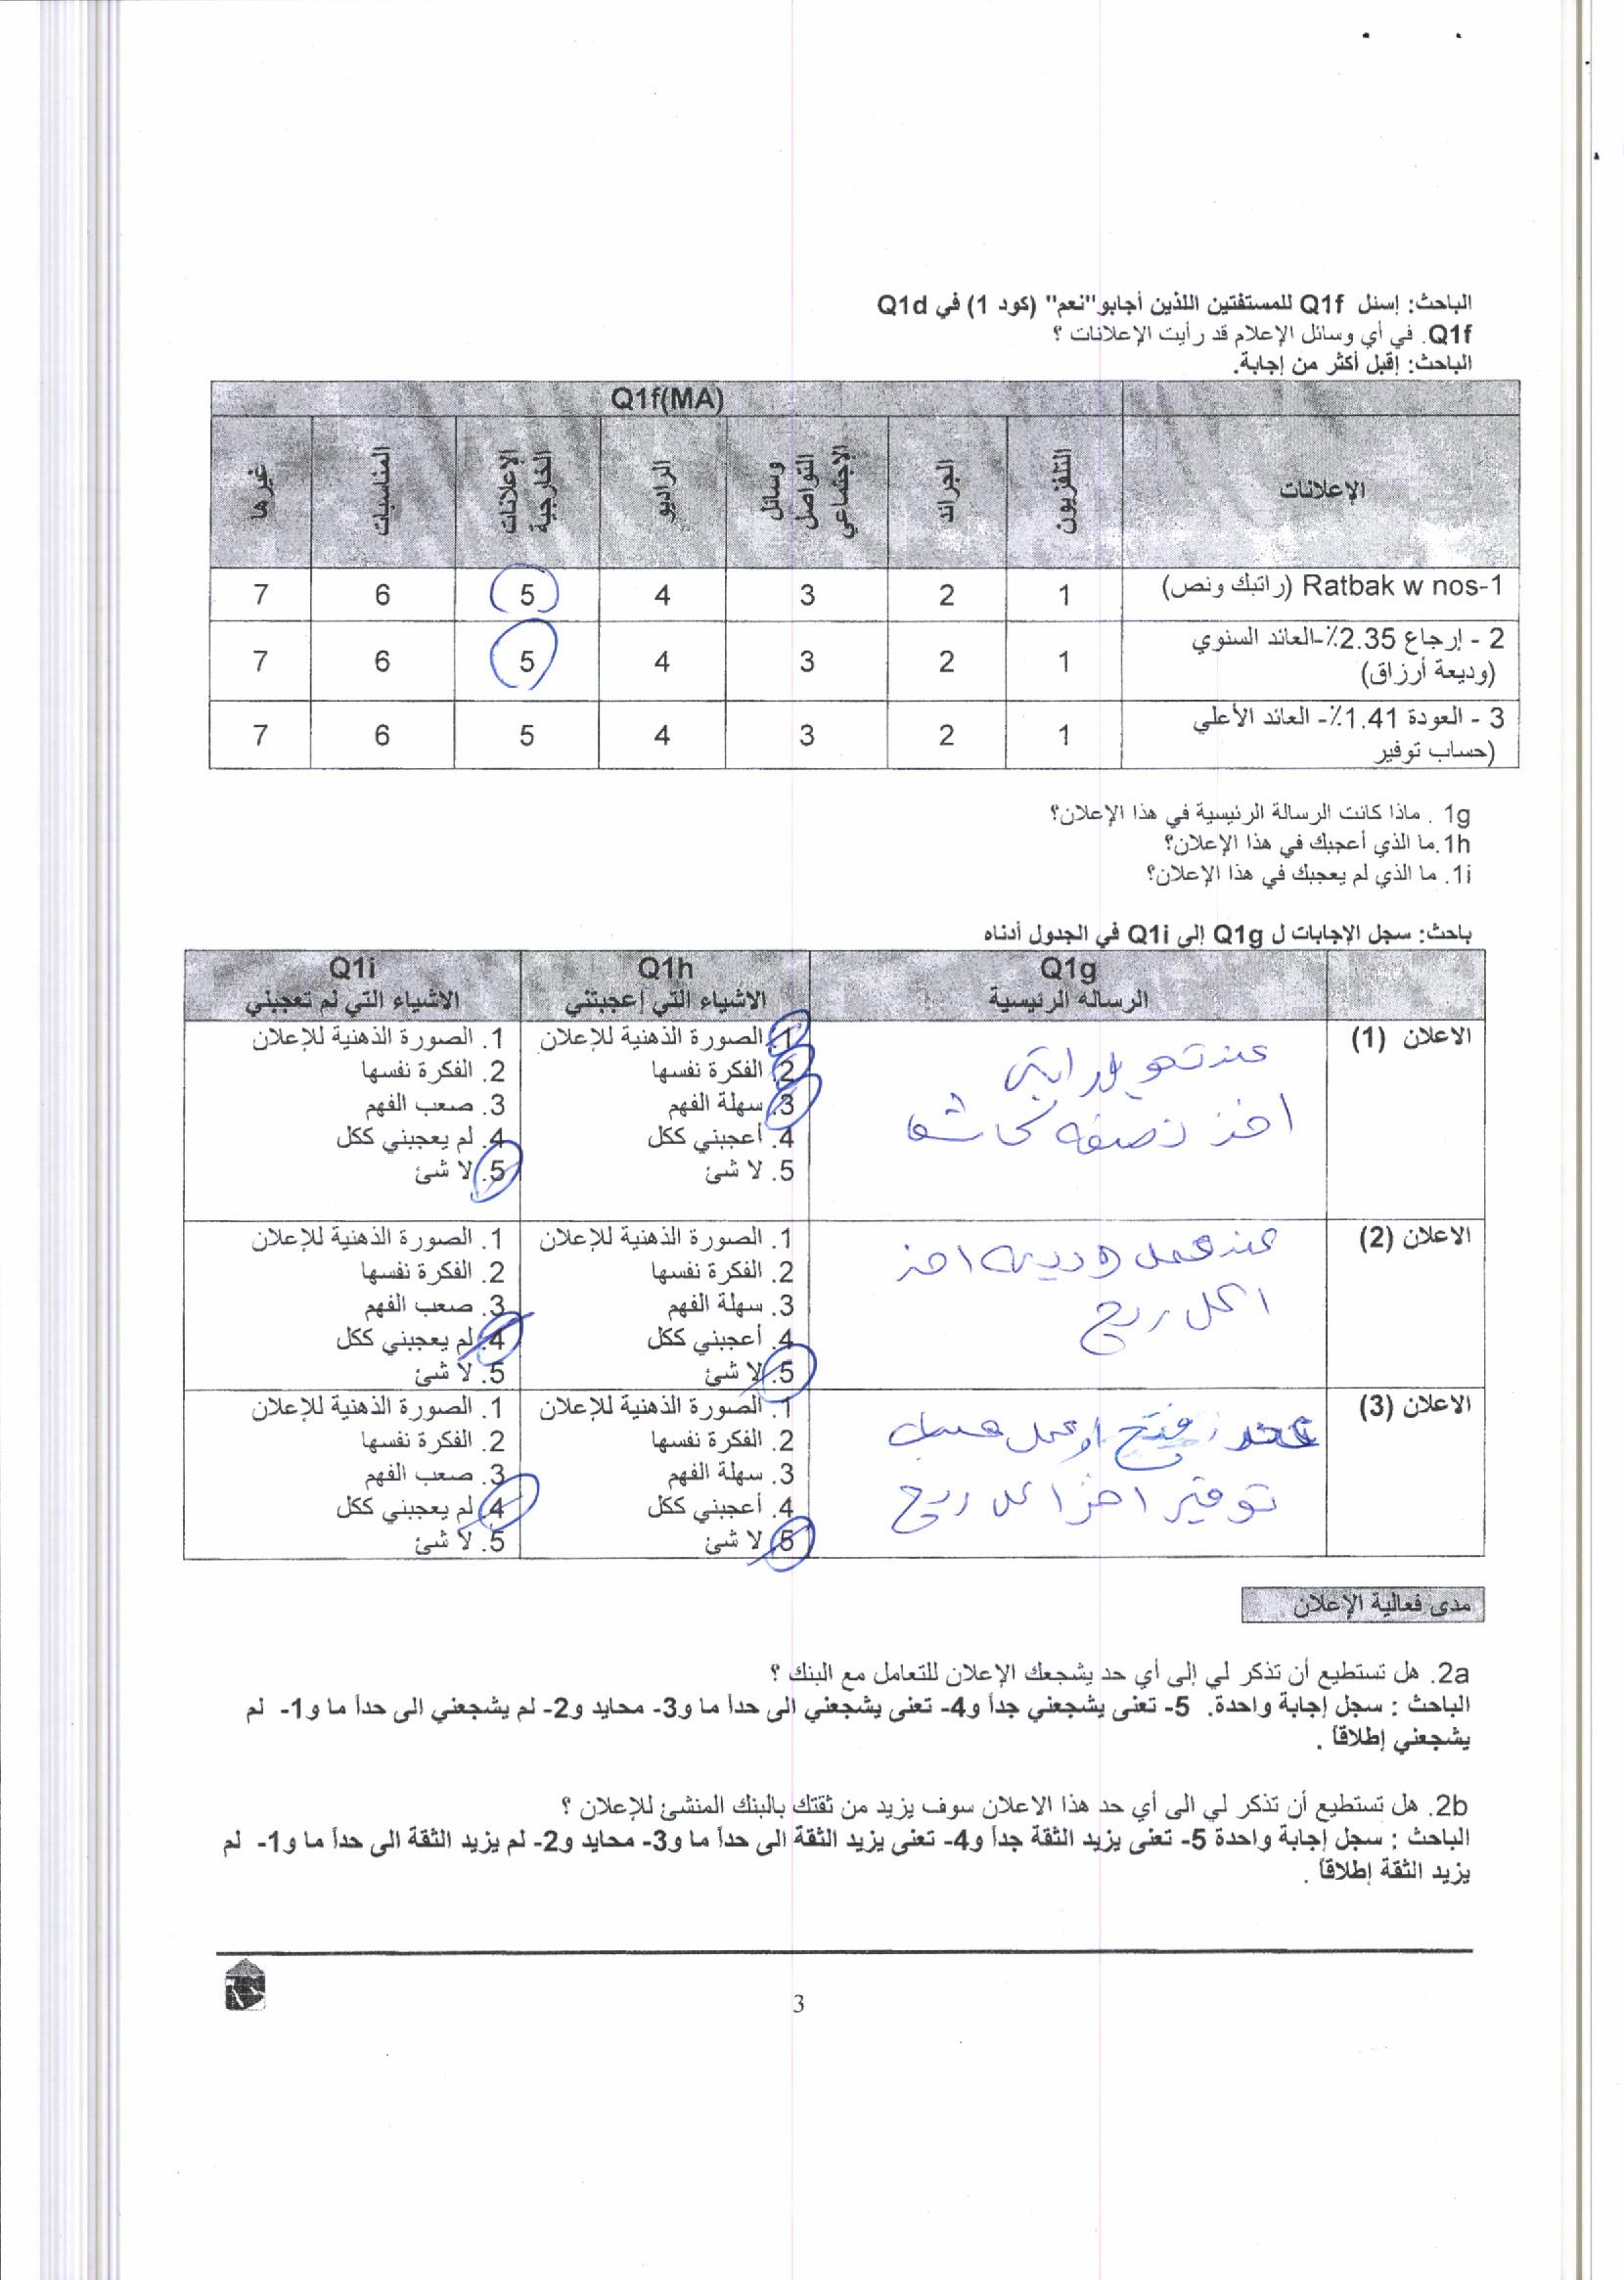 الباحث: إسئل Q1f للمستفتين اللذين أجابو"نعم" (كود 1) في Q1d
Q1f. في أي وسائل الإعلام قد رأيت الإعلانات ؟
الباحث: إقبل أكثر من إجابة.
Q1f(MA)
الإعلانات التلفزيون الجرائد وسائل التواصل الإجتماعي الراديو الإعلانات الخارجية المناسبات غيرها
1-Ratbak w nos (راتبك ونص) 1 2 3 4 5 6 7
2 - إرجاع 2.35٪-العائد السنوي
(وديعة أرزاق) 1 2 3 4 5 6 7
3 - العودة 1.41٪- العائد الأعلي
(حساب توفير 1 2 3 4 5 6 7
1g . ماذا كانت الرسالة الرئيسية في هذا الإعلان؟
1h.ما الذي أعجبك في هذا الإعلان؟
1i. ما الذي لم يعجبك في هذا الإعلان؟
باحث: سجل الإجابات ل Q1g إلى Q1i في الجدول أدناه
Q1g Q1h Q1i
الرساله الرئيسية الاشياء التي اعجبتني الاشياء التي لم تعجبني
الاعلان (1)
عند تحويل راتبي
اخذ نصفه كاش
1. الصورة الذهنية للإعلان
2. الفكرة نفسها
3. سهلة الفهم
4. أعجبني ككل
5. لا شئ
1. الصورة الذهنية للإعلان
2. الفكرة نفسها
3. صعب الفهم
4. لم يعجبني ككل
5. لا شئ
الاعلان (2)
عند عمل وديعه اخذ
اعلى ربح
1. الصورة الذهنية للإعلان
2. الفكرة نفسها
3. سهلة الفهم
4. أعجبني ككل
5. لا شئ
1. الصورة الذهنية للإعلان
2. الفكرة نفسها
3. صعب الفهم
4. لم يعجبني ككل
5. لا شئ
الاعلان (3)
عند فتح او عمل حساب
توفير اخذ اعلى ربح
1. الصورة الذهنية للإعلان
2. الفكرة نفسها
3. سهلة الفهم
4. أعجبني ككل
5. لا شئ
1. الصورة الذهنية للإعلان
2. الفكرة نفسها
3. صعب الفهم
4. لم يعجبني ككل
5. لا شئ
مدى فعالية الإعلان
2a. هل تستطيع أن تذكر لي إلى أي حد يشجعك الإعلان للتعامل مع البنك ؟
الباحث : سجل إجابة واحدة. 5- تعنى يشجعني جداً و4- تعنى يشجعني الى حداً ما و3- محايد و2- لم يشجعني الى حداً ما و1- لم
يشجعني إطلاقاً .
2b. هل تستطيع أن تذكر لي الى أي حد هذا الاعلان سوف يزيد من ثقتك بالبنك المنشئ للإعلان ؟
الباحث : سجل إجابة واحدة 5- تعنى يزيد الثقة جداً و4- تعنى يزيد الثقة الى حداً ما و3- محايد و2- لم يزيد الثقة الى حداً ما و1- لم
يزيد الثقة إطلاقاً .
3